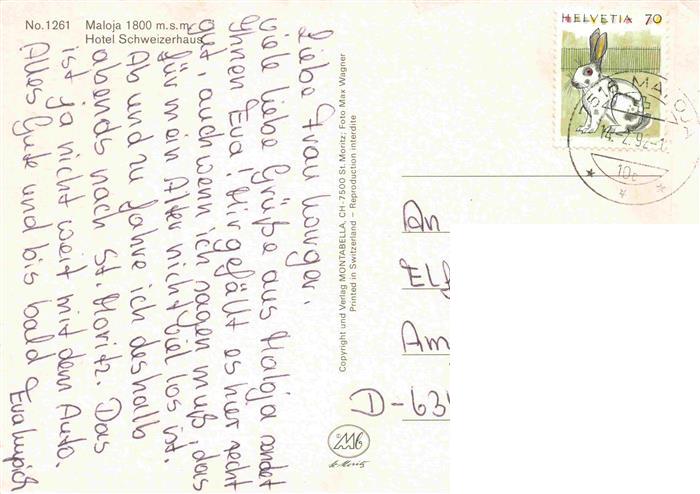 No. 1261 Maloja 1800 m.s.m.
Hotel Schweizerhaus
Liebe Frau
viele liebe Grüße aus Maloja sendet
Ihnen Eva! Mir gefällt es hier recht
gut, auch wenn ich sagen muß, das
für mein Alter nicht viel los ist.
Ab und zu fahre ich deshalb
abends nach St. Moritz. Das
ist ja nicht weit mit dem Auto.
Alles Gute und bis bald
Copyright und Verlag MONTABELLA, CH-7500 St. Moritz; Foto Max Wagner
Printed in Switzerland – Reproduction interdite
M6
St. Moritz
HELVETIA 70
MALOJA
14.-2.92-1
10
An
Elf
Am
D-635